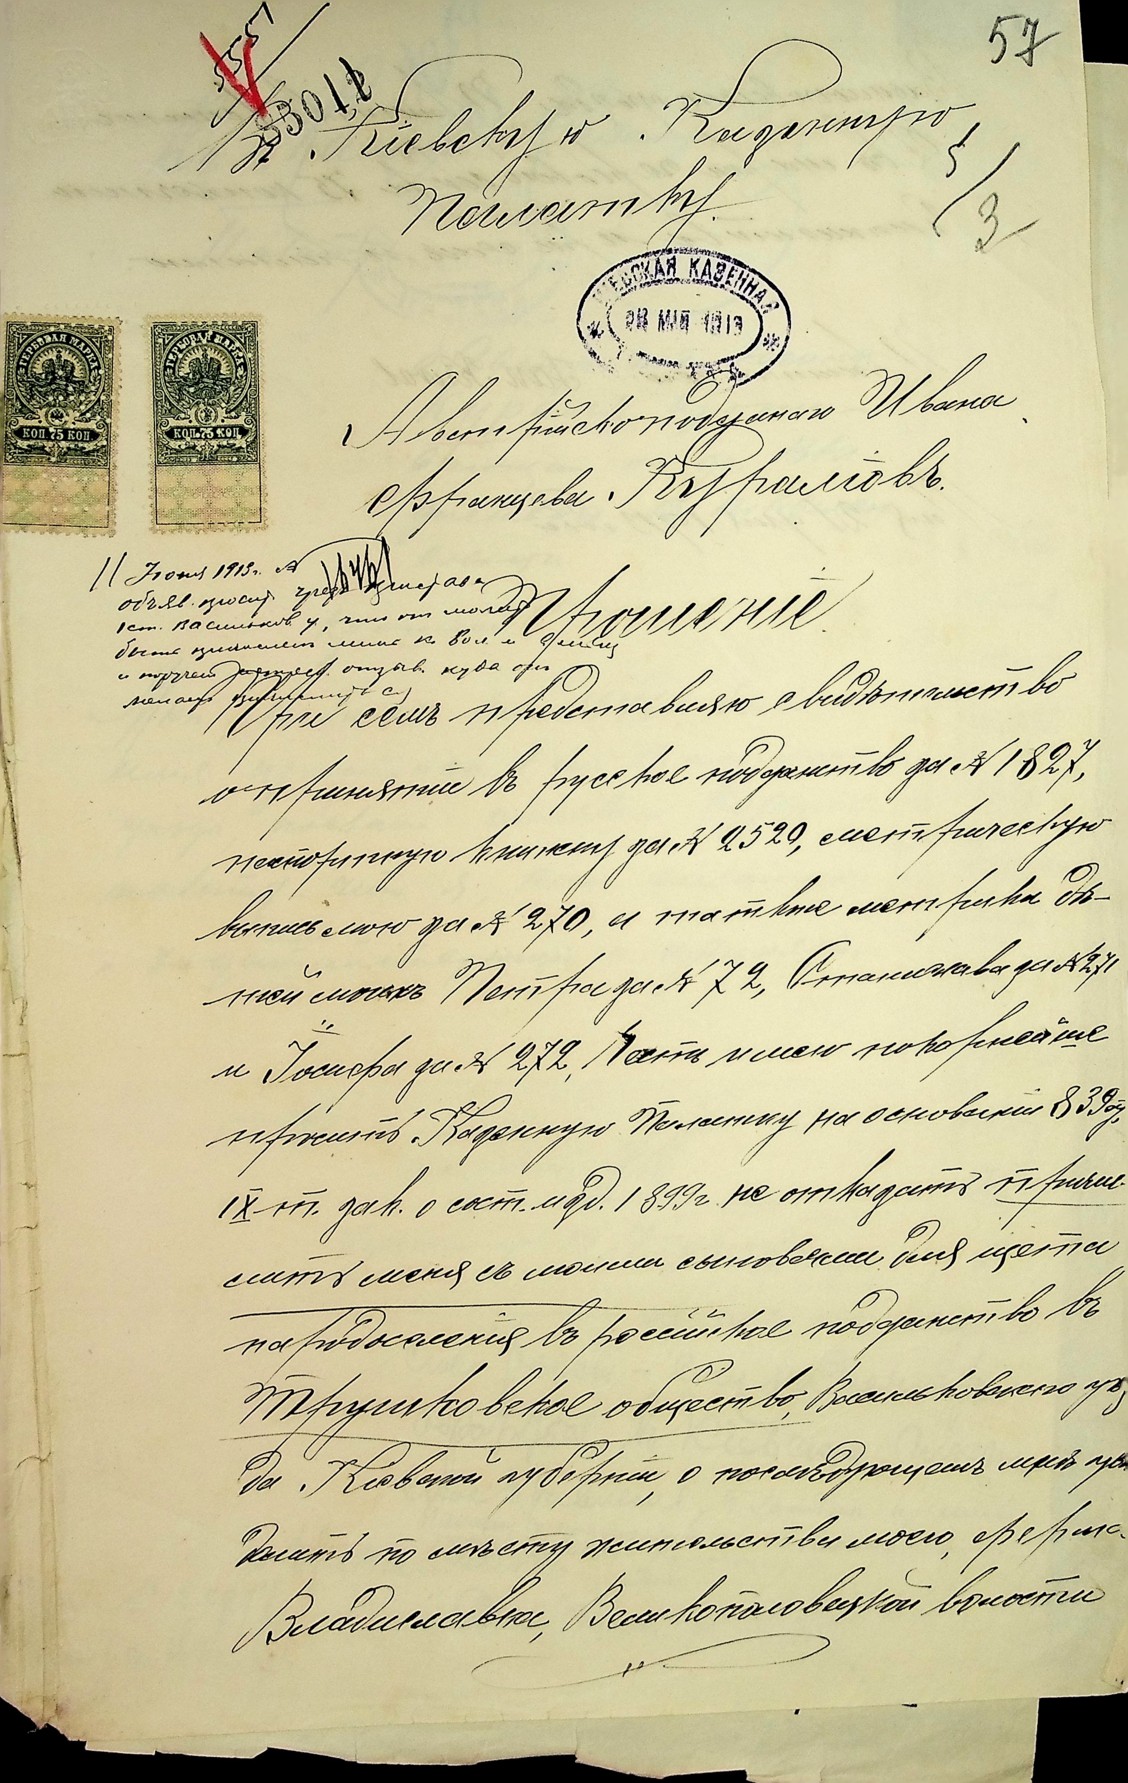 57
33011
Въ Кіевскую Казенную
Палату.
3
КІЕВСКАЯ КАЗЕННАЯ
28 МАЯ 1913
ГЕРБОВАЯ МАРКА
КОП. 75 КОП.
ГЕРБОВАЯ МАРКА
КОП. 75 КОП.
Австрійскоподданаго Ивана
Францева
11 Іюня 1913 г. №
объяв. просит. чрезъ пристава
1 ст. Васильков у,
Прошеніе
При семъ представляю свидѣтельство
о принятіи въ русское подданство за № 1827,
паспортную книжку за № 2520, метрическую
выпись мою за № 270, и также метрики дѣ-
тей моихъ Петра за № 72, Станислава за № 271
и Іосифа за № 272, Честь имею покорнейше
просить Казенную Палату на основаніи 839 ст,
IX т. зак. о сост. изд. 1899 г. не отказать причи-
слить меня съ моими сыновьями для щета
народоселенія въ россійское подданство въ
Трушковское общество, Васильковского уѣз
да Кіевской губерніи, о последующемъ мнѣ уве
домить по мѣсту жительства моего, ферма
Владиславка, Великополовецкой волости